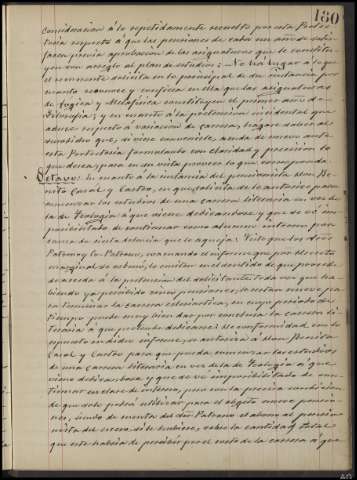 180
consideración á lo repetidamente resuelto por esta Protec
toria respecto á que las pensiones de cada un año se satis
facen previa aprobacion de las asignaturas que le constitu
yen con arreglo al plan de estudios; No há lugar á lo que
el recurrente solicita en lo principal de su instancia por
cuanto reconoce y confiesa en ella que las asignaturas
de Lógica y Metafísica constituyen el primer año de
Filosofía; y en cuanto á la pretension incidental que
aduce respecto á variacion de carrera, hágase saber al
susodicho que, si viere convenirle, acuda de nuevo ante
esta Protectoria formulando con claridad y precision lo
que desea, para en su vista proveer lo que corresponda.
Octavo: En cuanto á la instancia del pensionista Don Be
nito Casal y Castro, en que solicita se le autorice para
comenzar los estudios de una carrera literaria en vez de
la de Teología á que viene dedicandose y que se vé im
posibilitado de continuar como alumno interno por
causa de cierta dolencia que le aqueja: Visto que los dos
Patronos de Patrono, evacuando el informe que por decreto
marginal se acordó, lo emiten en sentido de que procede
accederse á la pretension del solicitante toda vez que ha
biendo ya percibido cinco pensiones, le restan nueve pa
ra terminar la carrera eclesiástica, en cuyo período de
tiempo puede muy bien dar por concluida la carrera li
teraria á que pretende dedicarse: De conformidad con lo
expuesto en dicho informe, se autoriza á Don Benito
Casal y Castro para que pueda comenzar los estudios
de una carrera literaria en vez de la de Teología á que
viene dedicandose y que se vé imposibilitado de con
tinuar en clase de interno, pero con la precisa condicion
de que solo podrá utilizar para el objeto nueve pensio
nes, siendo de cuenta del Patrono el abono al pensio
nista del exceso, si le hubiere, sobre la cantidad total
que este habria de percibir por el resto de la carrera á que